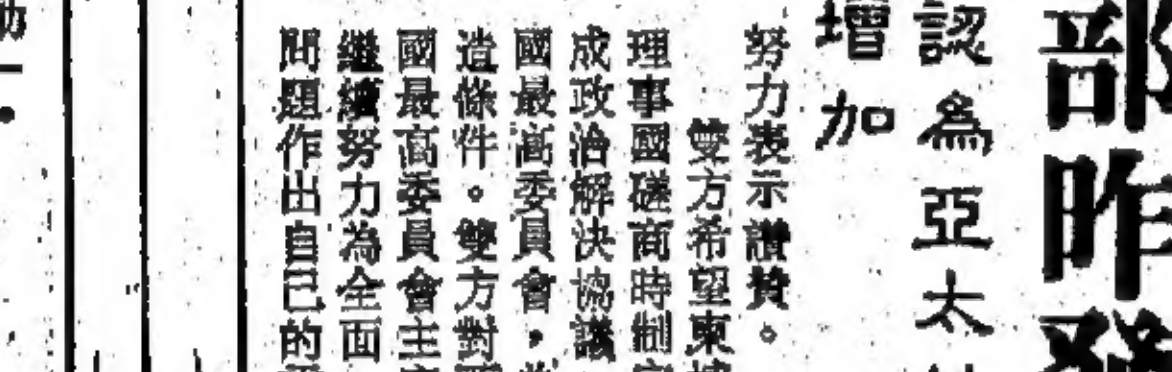 部昨發
認為亞太
增加
努力表示讚賞。
雙方希望柬
理事國磋商時制
成政治解決協議
國最高委員會，
造條件。雙方對
國最高委員會主
繼續努力為全面
問題作出自己的